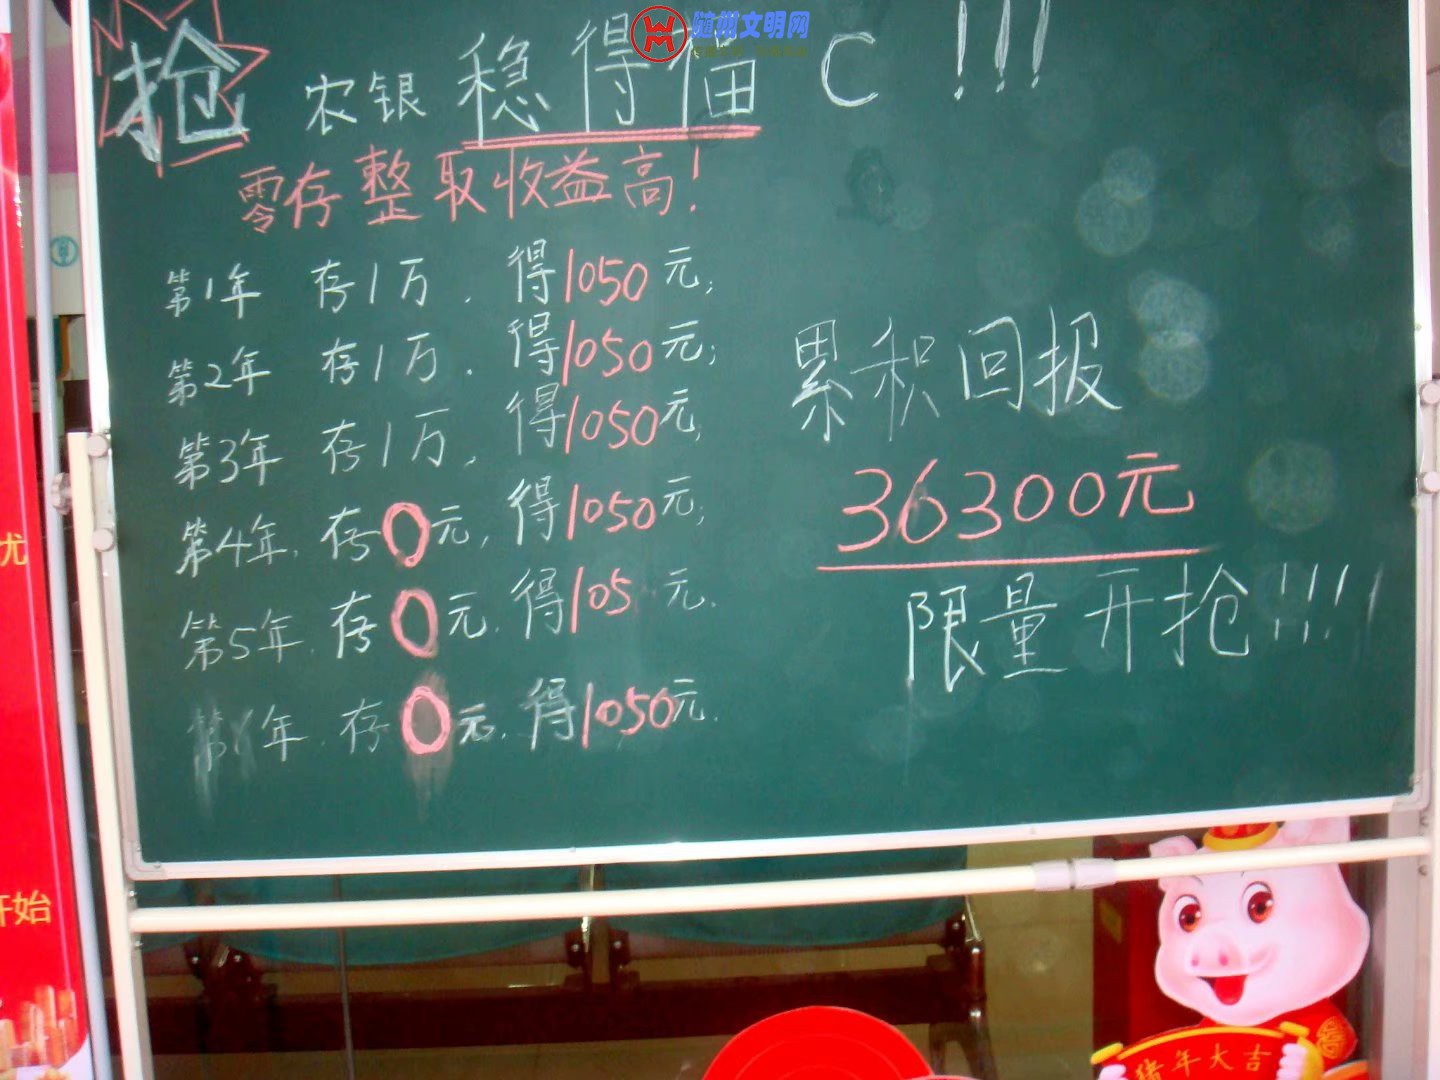 随州文明网
抢 农银 稳得福 C !!!
零存整取收益高!
第1年 存1万. 得1050元;
第2年 存1万. 得1050元;
第3年 存1万. 得1050元;
第4年. 存0元, 得1050元;
第5年. 存0元. 得105 元.
第 年. 存0元. 得1050元.
累积回报
36300元
限量开抢!!!!
尤
开始
猪年大吉